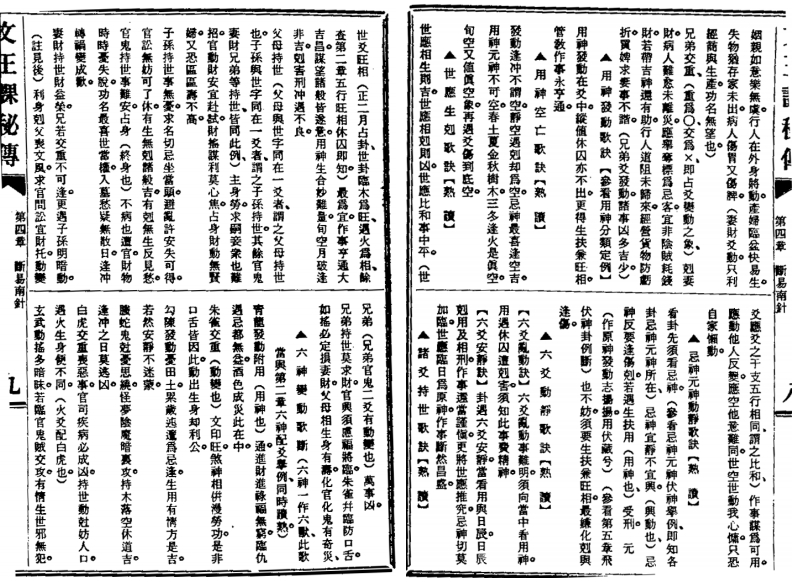 姻親如意樂無壞行人在外身將動產婦臨盆快易生
失物猶存家未出病人傷胃又傷脾（妻財爻動只利
經商與生產功名無望也）
兄弟交重（重爲〇交爲×即占爻變動之象）剋妻
財病人難愈未離災應舉奪標爲忌客宜非陰賊耗錢
財若帶吉神還有助行人道阻未歸來經營貨物防虧
折買婢求妻事不諧（兄弟爻發動諸事凶多吉少）
▲用神發動歌訣【參看用神分類定例】
用神發動在爻中縱值休囚亦不出更得生扶兼旺相
管敎作事永亨通
▲用神空亡歌訣【熟讀】
發動逢冲不謂空靜空遇剋却爲空忌神最喜逢空吉
用神元神不可空春土夏金秋樹木三冬逢火是眞空
旬空又值眞空象再遇爻傷到底空
▲世應生剋歌訣【熟讀】
世應相生則吉世應相剋則凶世應比和事中平（世
爻應爻之干支五行相同謂之比和）作事謀爲可用
應動他人反變應空他意難同世空世動我心慵只恐
自家懶動
▲忌神元神動靜歌訣【熟讀】
看卦先須看忌神（參看忌神元神伏神舉例即知各
卦忌神元神所在）忌神宜靜不宜興（興動也）忌
神反要逢傷剋若遇生扶用（用神也）受刑元
（作原神發動志揚揚用伏藏兮）（參看第五章飛
伏神卦例斷）也不妨須要生扶兼旺相最嫌化剋與
逢傷
▲六爻動靜歌訣【熟讀】
【六爻亂動訣】六爻亂動事難明須向當中看用神
用遇休囚遭剋害須知此事費精神
【六爻安靜訣】卦遇六爻安靜當看用與日辰日辰
剋用及相刑作事還當謹愼更將世應推究忌神切莫
加臨世應臨日爲原神作事斷然昌盛
▲諸爻持世歌訣【熟讀】
第四章 斷易南針
八
世爻旺相（正二月占卦世卦臨木爲旺遇火爲相餘
查第二章五行旺相休囚即知）最爲宜作事亨通大
吉昌謀望諸般皆遂意用神生合妙難量旬空月破逢
非吉剋害刑沖遇不良
父母持世（父母與世字同在一爻者謂之父母持世
也子孫與世字同在一爻者謂之子孫持世其餘官鬼
妻財兄弟等持世皆同此例）主身勞求嗣妾衆也難
招官動財安宜赴試財搖謀利莫心焦占身財動無賢
婦又恐區區壽不高
子孫持世事無憂求名切忌坐當頭避亂許安失可得
官訟無妨可了休有生無剋諸般吉有剋無生反見愁
官鬼持世事難安占身（終身也）不病也遭官財物
時時憂失脫功名最喜世當權入墓愁疑無散日逢冲
轉禍變成歡
妻財持世財益榮兄若交重不可逢更遇子孫明暗動
（註見後）利身剋父喪文風求官問訟宜財托動變
兄弟（兄弟官鬼二爻有動變也）萬事凶
兄弟持世莫求財官興須慮禍將臨朱雀幷臨防口舌
如搖必定損妻財父母相生身有壽化官化鬼有奇災
▲六神變動歌斷（六神一作六獸此歌
當與第二章六神配爻舉例同時讀熟）
靑龍發動附用（用神也）通進財進祿福無窮臨仇
遇忌都無益酒色成災此在中
朱雀交重（動變也）文印旺煞神相併漫勞功是非
口舌皆因此動出生身却利公
勾陳發動憂田土累歲迍邅爲忌逢生用有情方是吉
若然安靜不迷蒙
螣蛇鬼尅憂思繞怪夢陰魔暗裏攻持木落空休道吉
逢冲之日莫逃凶
白虎交重喪惡事官司疾病必成凶持世動尅妨人口
遇火生身便不同（火爻配白虎也）
玄武動搖多暗昧若臨官鬼賊交攻有情生世邪無犯
文王課秘傳
第四章 斷易南針
九